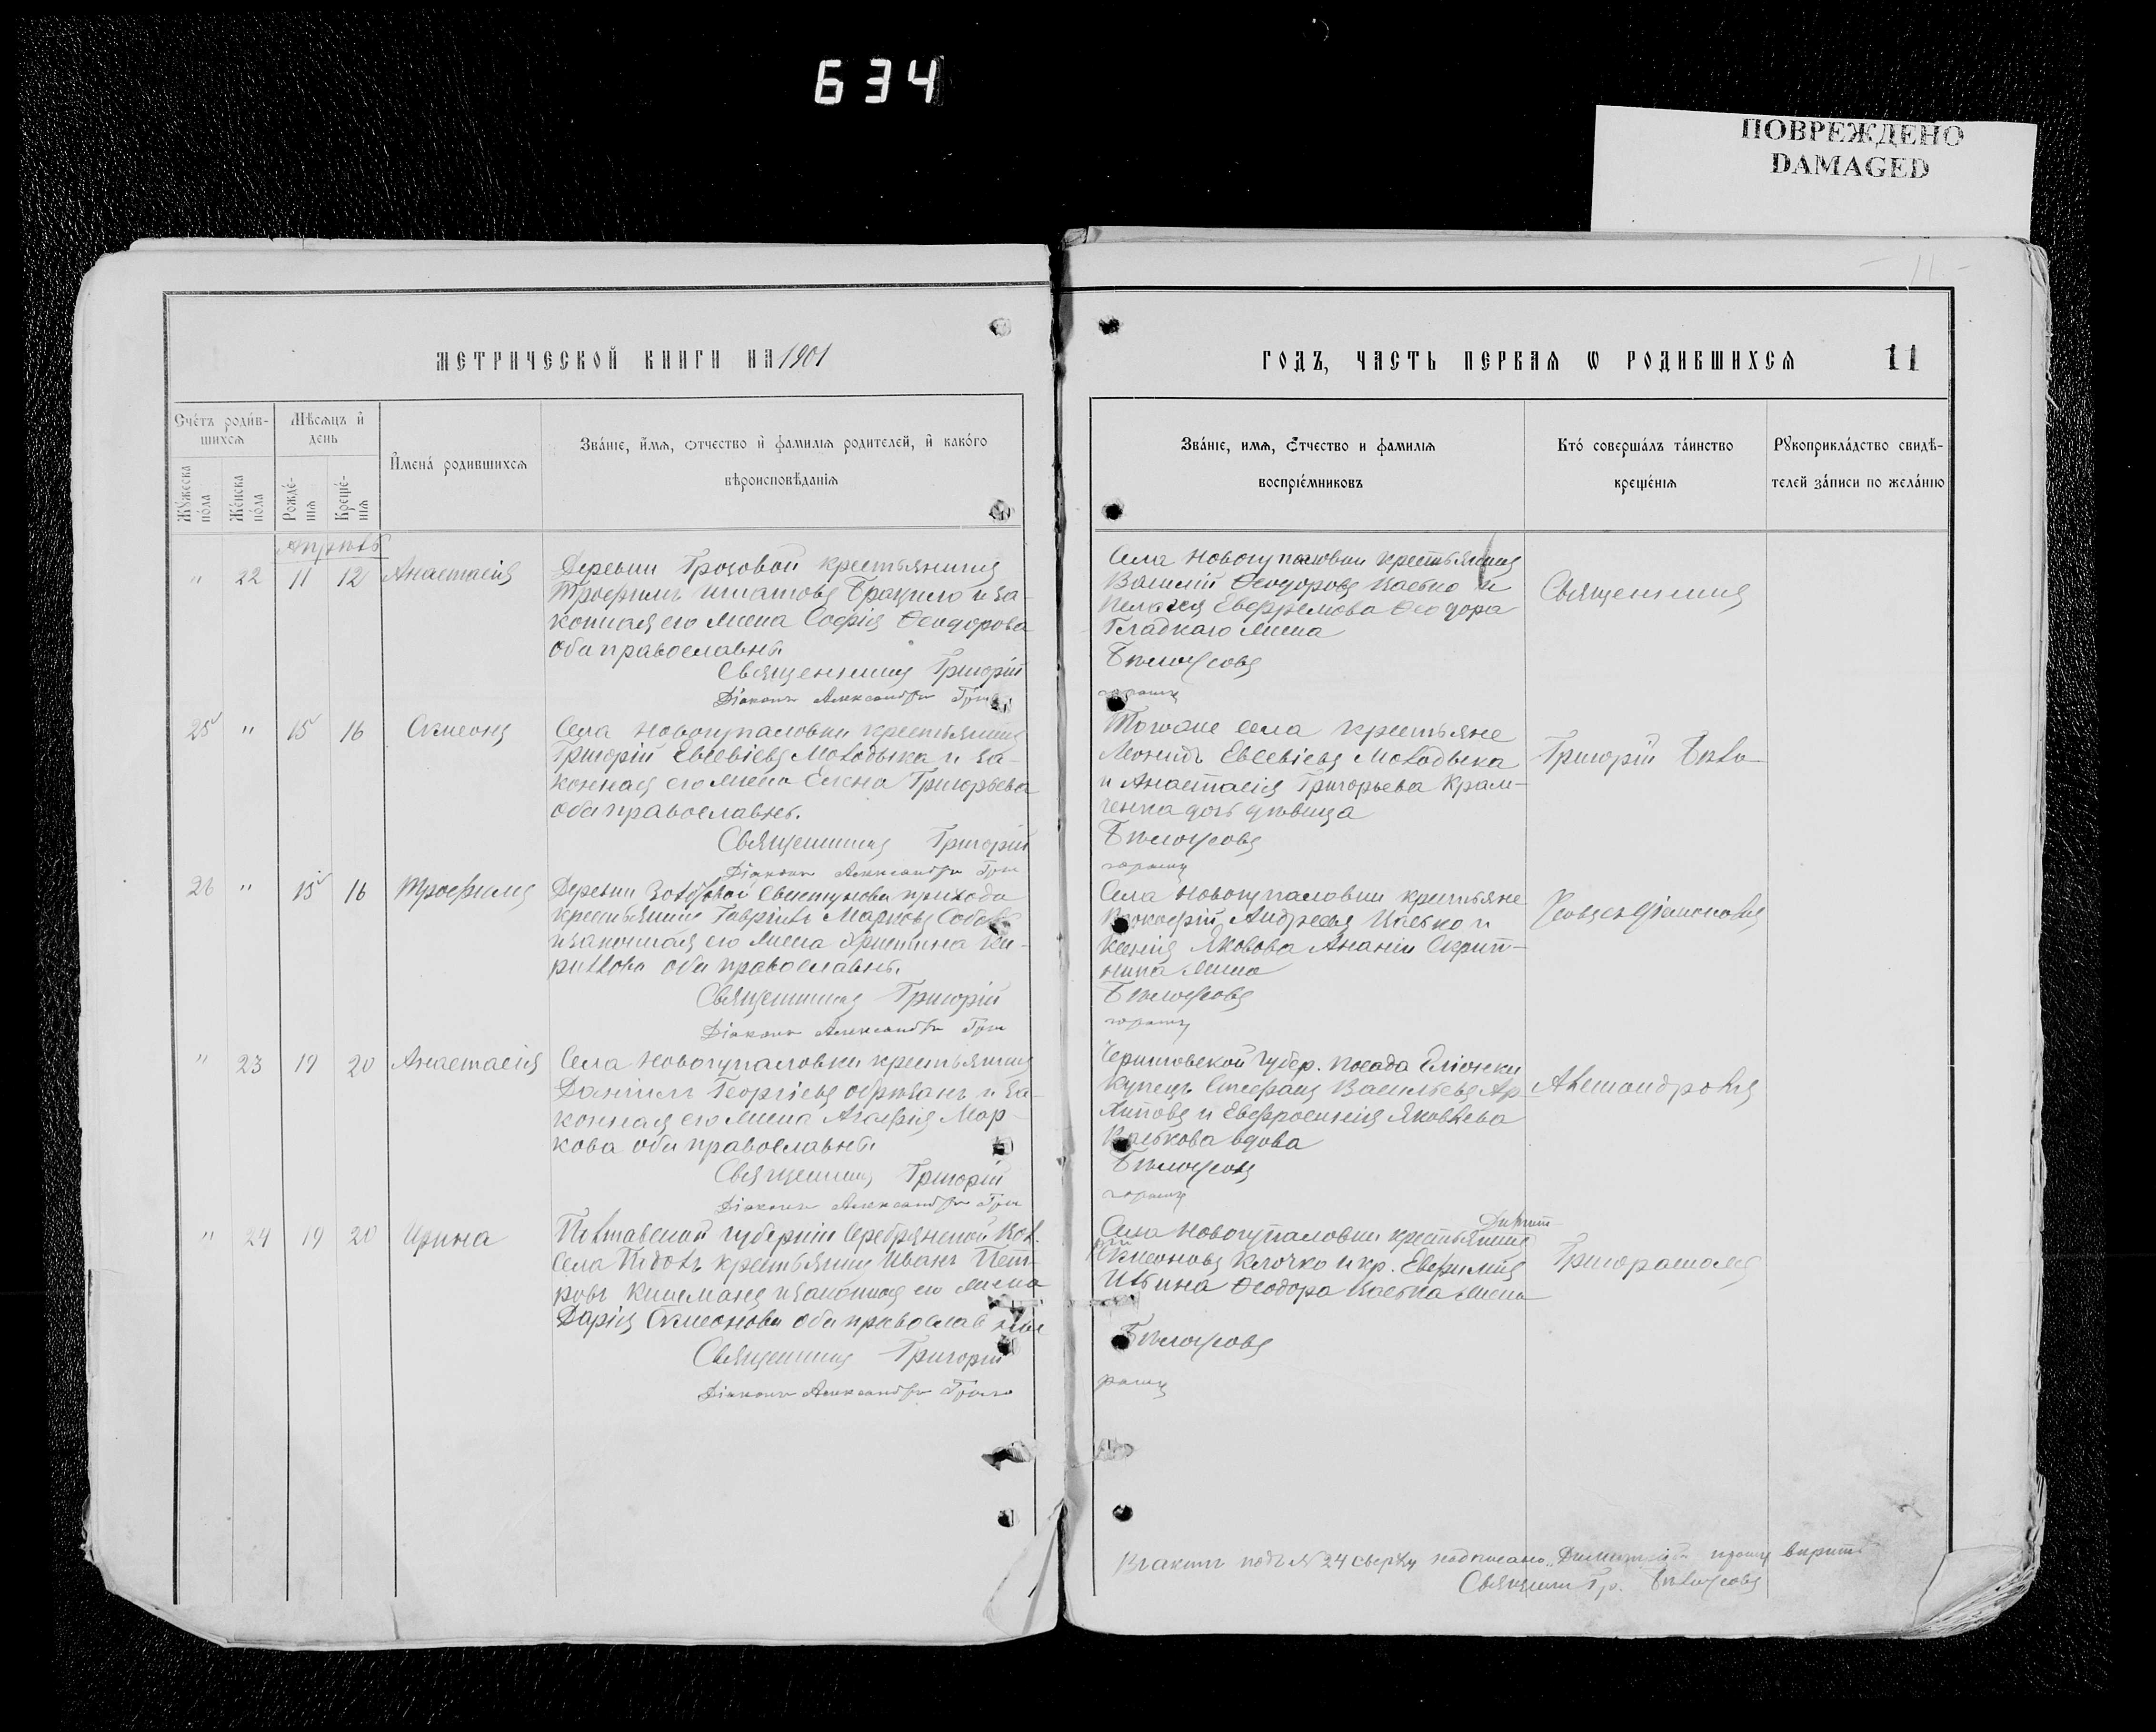 634
ПОВРЕЖДЕНО
DAMAGED
11
МЕТРИЧЕСКОЙ КНИГИ НА 1901
ГОДЪ, ЧАСТЬ ПЕРВАЯ Ѡ РОДИВШИХСЯ 11
Счетъ родив-
шихся
Мѣсяцъ и
день
Мужеска
пола
Женска
пола
Рожде-
нія
Креще-
нія
Имена родившихся
Званіе, имя, отчество и фамилія родителей, и какого
вѣроисповѣданія
Званіе, имя, отчество и фамилія
воспріемниковъ
Кто совершалъ таинство
крещенія
Рукоприкладство свидѣ-
телей записи по желанію
Апрѣль
" 22 11 12 Анастасія
Деревни Грозовой крестьянинъ
Трофимъ Игнатовъ и за-
конная его жена Софія Ѳеодорова
оба православны
Священникъ Григорій
Діаконъ Александръ Гри
Села Новогупаловки крестьянинъ
Василій Ѳеодоровъ Касько и
Пелагея Евфремова Ѳеодора
Гладкаго жена
Бѣлоусовъ
горашъ
Священникъ
25 " 15 16 Симеонъ
Села Новогупаловки крестьянинъ
Григорій Евсевіевъ Молодыка и за-
конная его жена Елена Григорьева
оба православны.
Священникъ Григорій
Діаконъ Александръ Гри
Тогоже села крестьяне
Леонидъ Евсевіевъ Молодыка
и Анастасія Григорьева Крам-
ченка дочь дѣвица
Бѣлоусовъ
горашъ
Григорій Бѣло-
26 " 15 16 Трофимъ
Деревни Свистунова прихода
крестьянинъ Гавріилъ Марковъ
и законная его жена Христина Ки-
риллова оба православны.
Священникъ Григорій
Діаконъ Александръ Гри
Села Новогупаловки крестьяне
Прокофій Андреевъ Касько и
Ксенія Яковова Ананіи Скрип-
ника жена
Бѣлоусовъ
горашъ
" 23 19 20 Анастасія
Села Новогупаловки крестьянинъ
Даніилъ Георгіевъ и за-
конная его жена Агафія Мар-
кова оба православны
Священникъ Григорій
Діаконъ Александръ Гри
Черниговской губер. посада Еліонки
купецъ Стефанъ Васильевъ Ар-
хиповъ и Евфросинія Яковлева
Каськова вдова
Бѣлоусовъ
горашъ
Александровъ
" 24 19 20 Ирина
Полтавской губерніи Серебрянской вол.
села крестьянинъ Иванъ Пет-
ровъ и законная его жена
Дарія Симеонова оба православные
Священникъ Григорій
Діаконъ Александръ Григо
Димит-
Села Новогупаловки крестьянинъ
рій Симеоновъ Клочко и кр. Евфимія
Ильина Ѳеодора Каська жена
Бѣлоусовъ
рашъ
Григорашъ
В актѣ подъ № 24 сверху надписано „Димитрій“ прошу вѣрить
Священ. Гр. Бѣлоусовъ